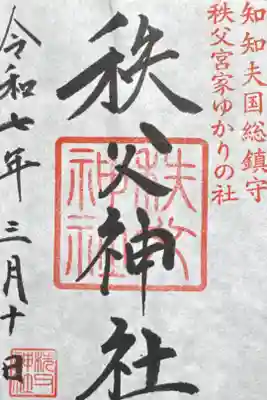 知知夫国総鎮守
秩父宮家ゆかりの社
秩父神社
秩父
神社
令和七年 三月十日
秩父
神社